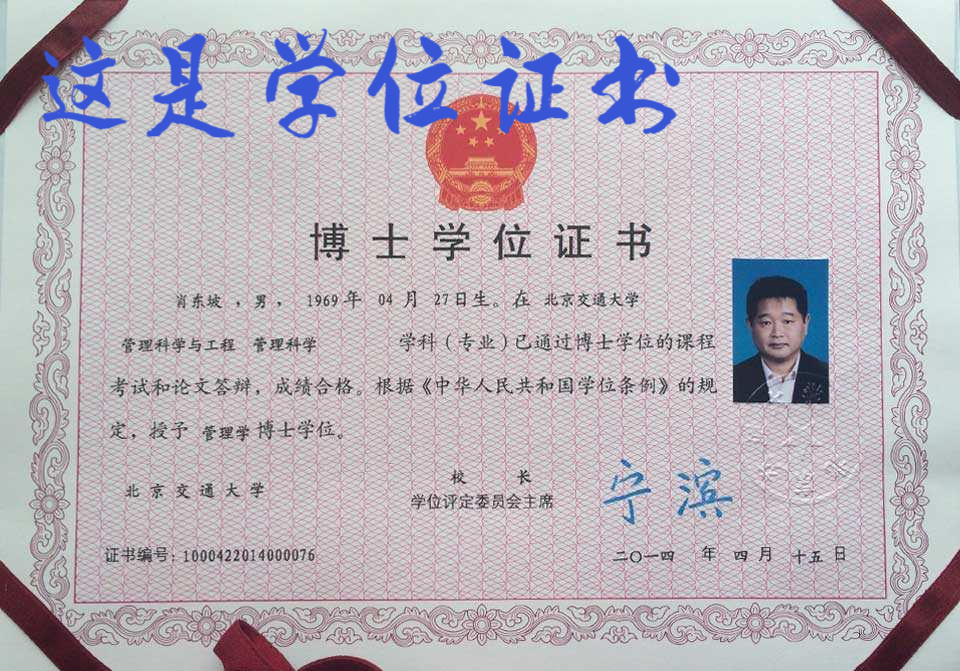 这是学位证书
博士学位证书
肖东坡，男，1969年 04月 27日生。在 北京交通大学
管理科学与工程 管理科学 学科（专业）已通过博士学位的课程
考试和论文答辩，成绩合格。根据《中华人民共和国学位条例》的规
定，授予 管理学博士学位。
北京交通大学
校 长
学位评定委员会主席
宁滨
证书编号：1000422014000076
二〇一四 年 四 月 十五 日